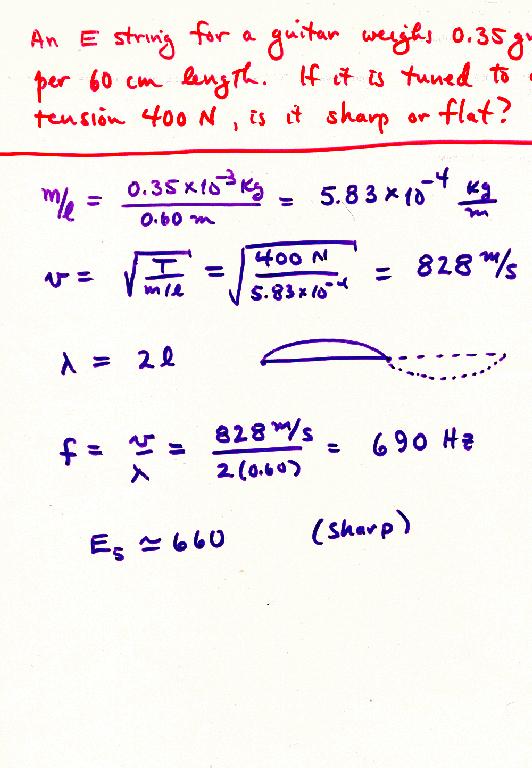 An E string for a guitar weighs 0.35 g
per 60 cm length. If it is tuned to
tension 400 N, is it sharp or flat?
m/l = 0.35 x 10⁻³ Kg / 0.60 m = 5.83 x 10⁻⁴ Kg/m
v = √(T / m/l) = √(400 N / 5.83 x 10⁻⁴) = 828 m/s
λ = 2l
f = v/λ = 828 m/s / 2(0.60) = 690 Hz
E₅ ≃ 660 (sharp)